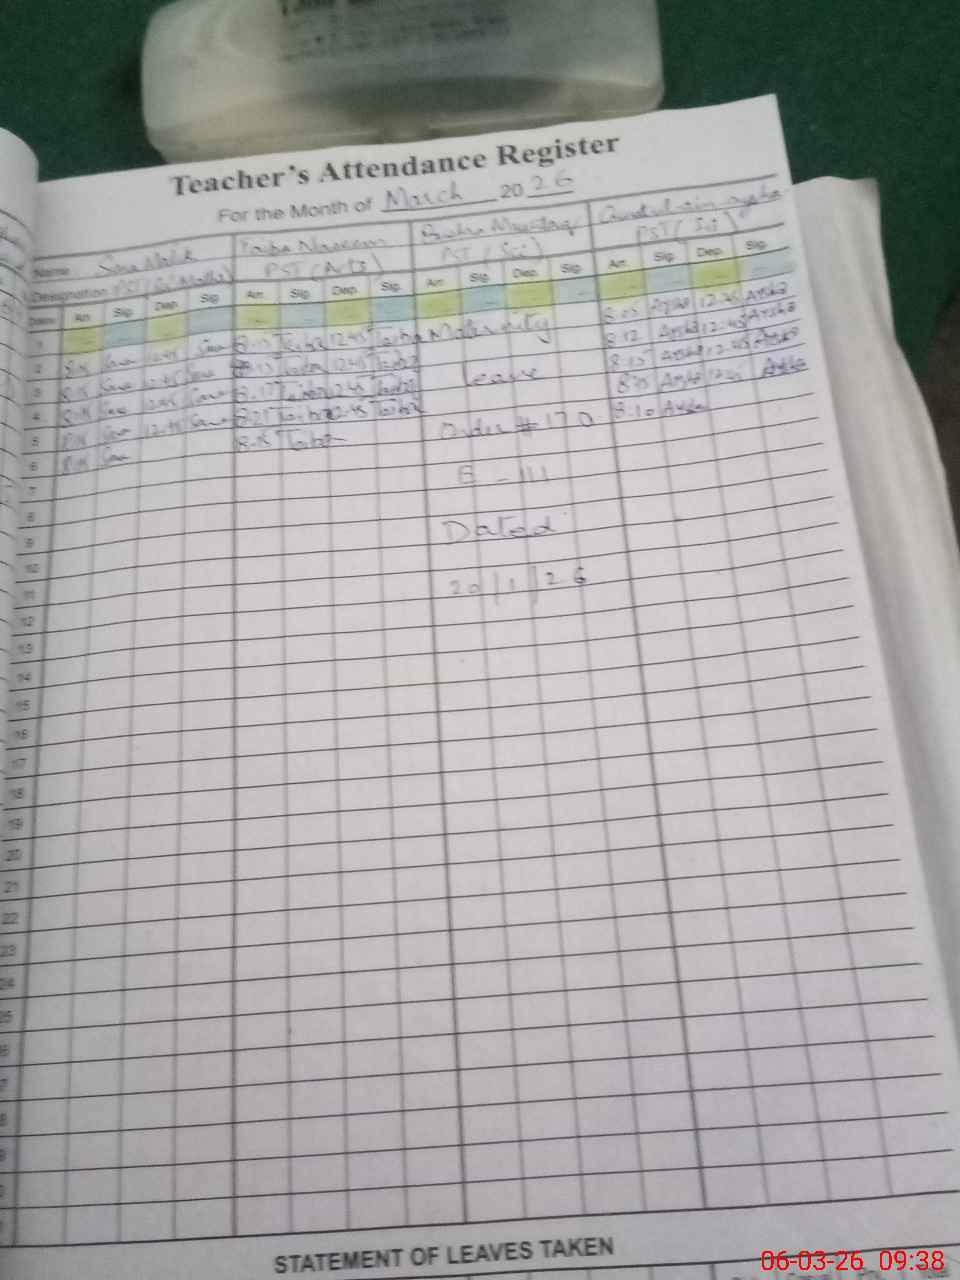 Teacher's Attendance Register
For the Month of March 2026
Name Sana Malik Taiba Naseem Quratulain ayesha
Designation PST (Sci Maths) PST (Arts) PST (Sci) PST (Sci)
Dates Arr. Sig. Dep. Sig. Arr. Sig. Dep. Sig. Arr. Sig. Dep. Sig. Arr. Sig. Dep. Sig.
1
2 8:15 Sana 12:45 Sana 8:15 Taiba 12:45 Taiba Maternity 8:05 Aysha 12:45 Aysha
3 8:15 Sana 12:45 Sana 8:15 Taiba 12:45 Taiba 8:12 Aysha 12:45 Aysha
4 8:15 Sana 12:45 Sana 8:17 Taiba 12:45 Taiba Leave 8:15 Aysha 12:45 Aysha
5 8:15 Sana 12:45 Sana Taiba 12:45 Taiba Aysha Aysha
6 8:15 Sana 8:15 Taiba Order # 170 8:10 Aysha
7 E - III
8
9 Dated
10
11 20/1/26
12
13
14
15
16
17
18
19
20
21
22
23
24
25
STATEMENT OF LEAVES TAKEN
06-03-26 09:38